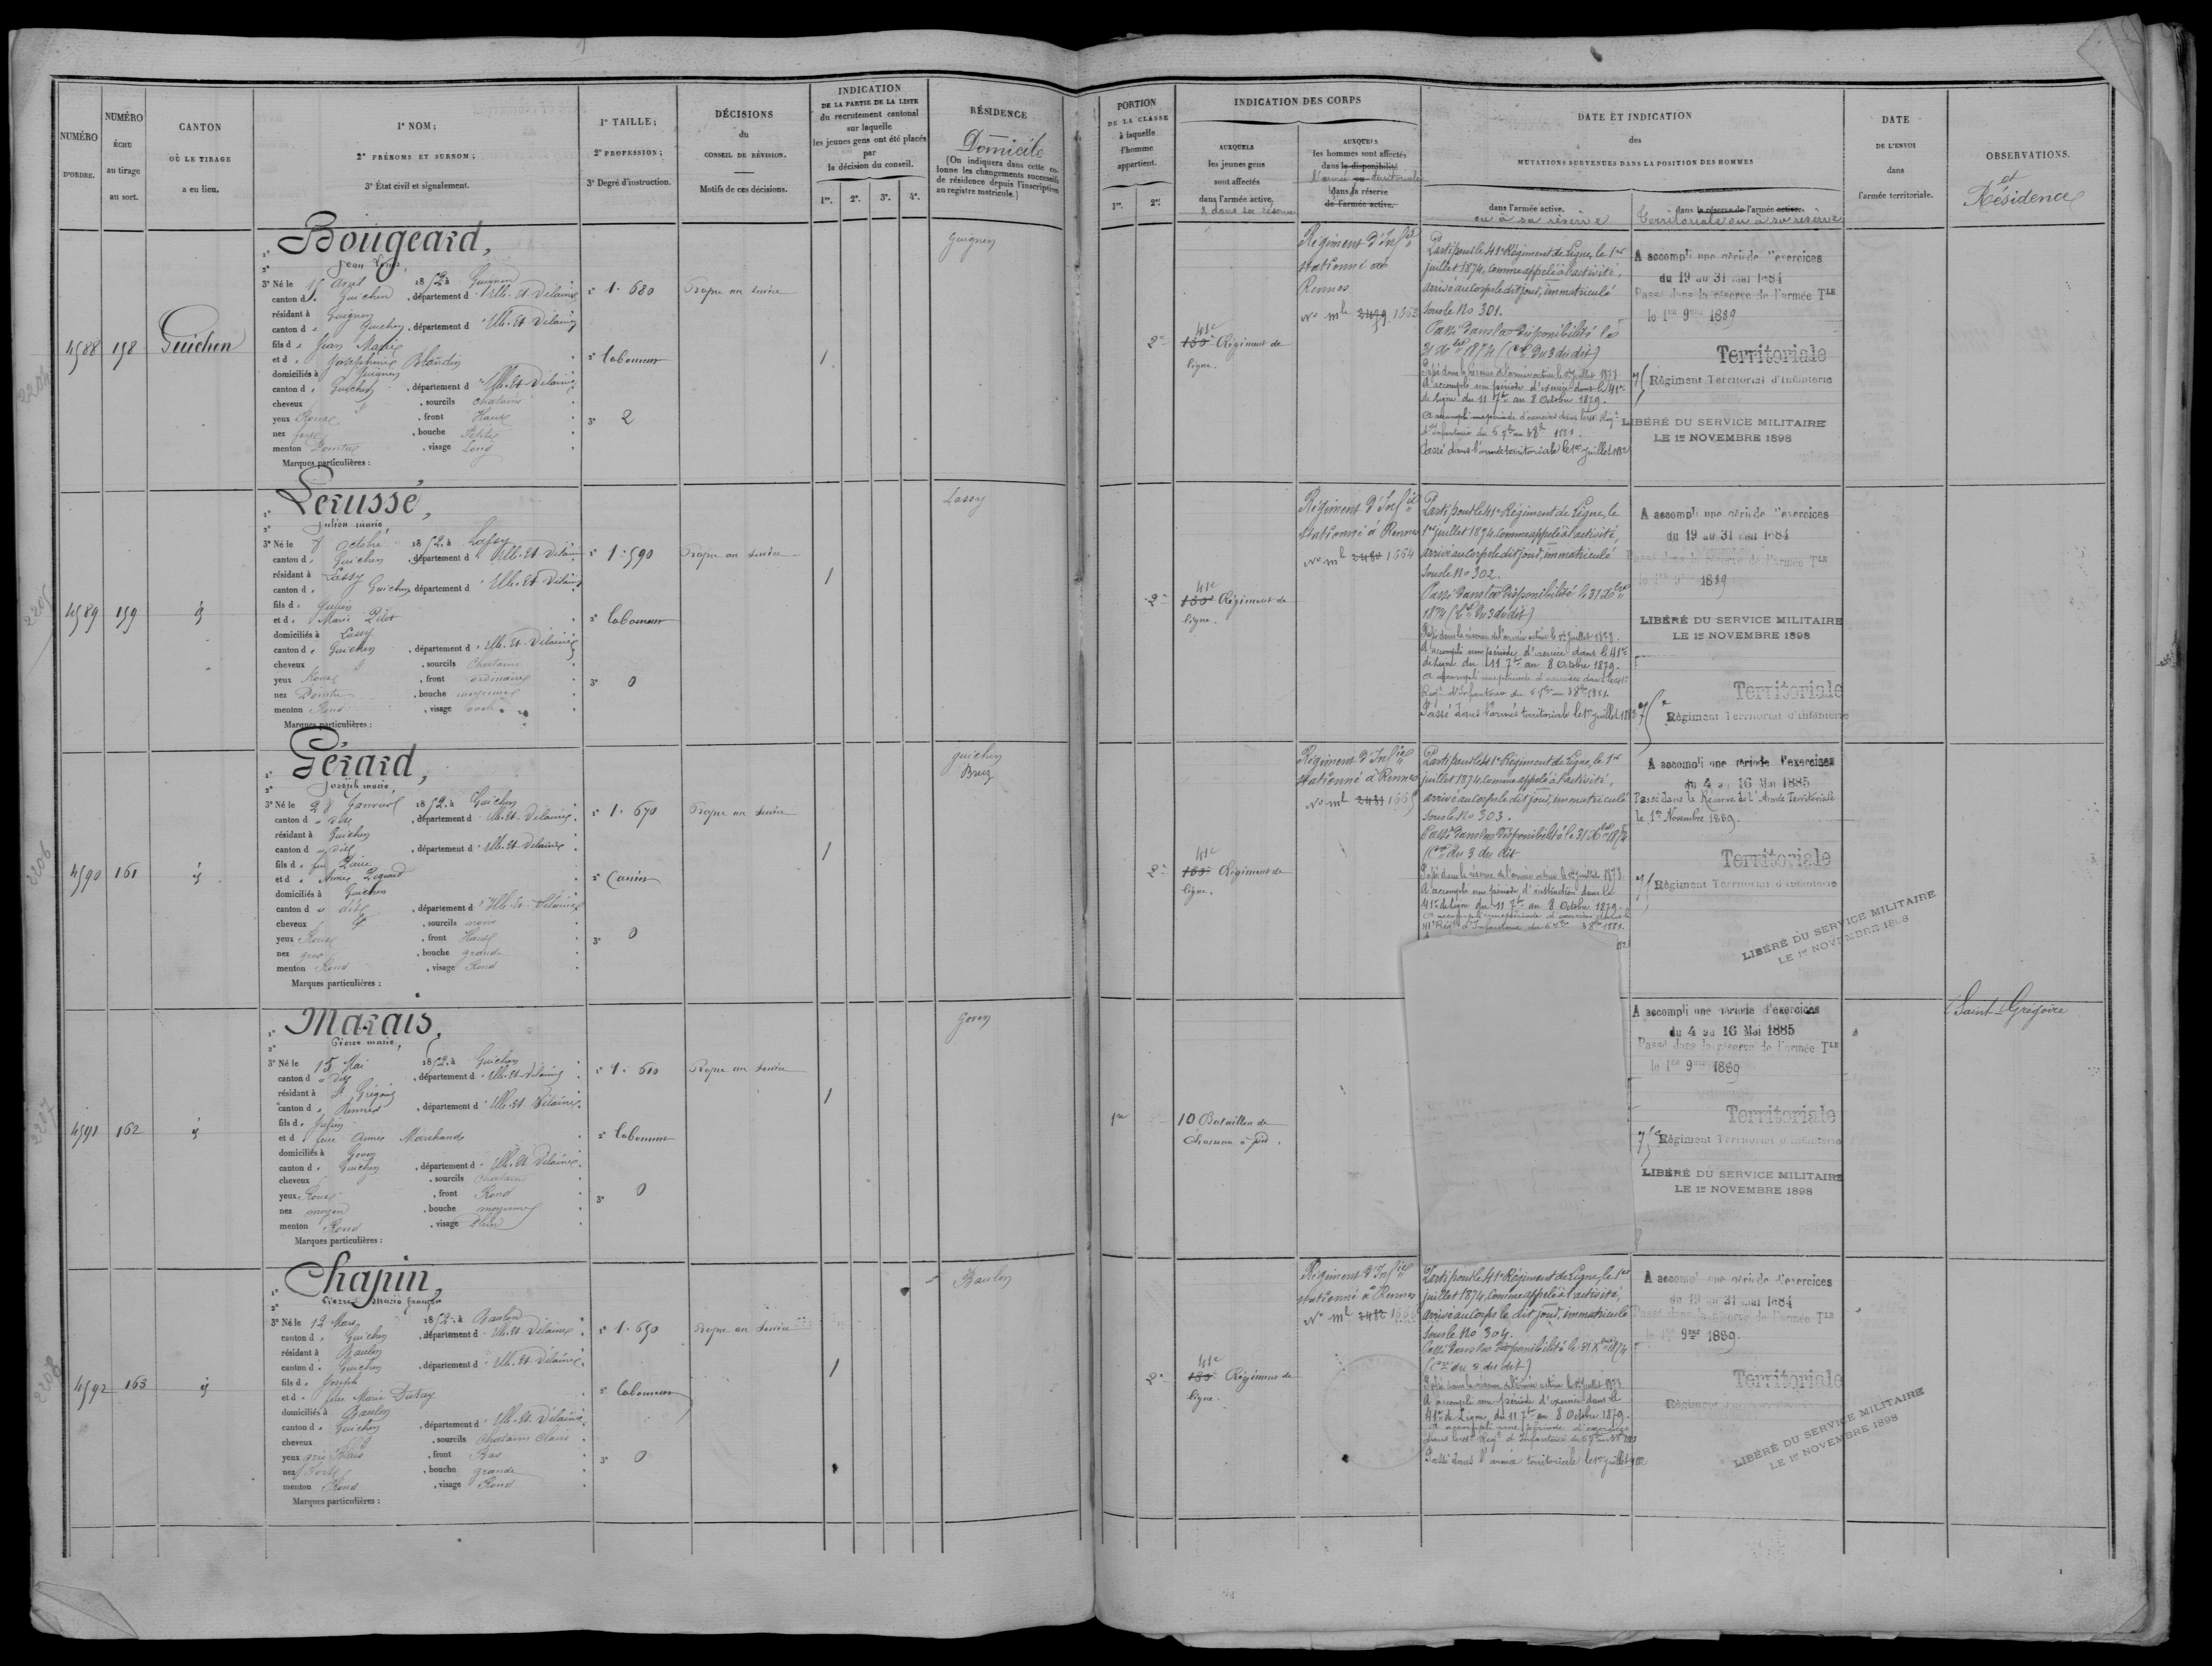 NUMÉRO
D'ORDRE.
NUMÉRO
ÉCHU
au tirage
au sort.
CANTON
OÙ LE TIRAGE
a eu lieu.
1° NOM;
2° PRÉNOMS ET SURNOM;
3° État civil et signalement.
1° TAILLE;
2° PROFESSION;
3° Degré d'instruction.
DÉCISIONS
du
CONSEIL DE RÉVISION.
Motifs de ces décisions.
INDICATION
DE LA PARTIE DE LA LISTE
du recrutement cantonal
sur laquelle
les jeunes gens ont été placés
par
la décision du conseil.
1re. 2e. 3e. 4e.
RÉSIDENCE
Domicile
(On indiquera dans cette co-
lonne les changements successifs
de résidence depuis l'inscription
au registre matricule.)
PORTION
DE LA CLASSE
à laquelle
l'homme
appartient.
1re. 2e.
INDICATION DES CORPS
AUXQUELS
les jeunes gens
sont affectés
dans l'armée active,
& dans sa réserve
AUXQUELS
les hommes sont affectés
dans la disponibilité
l'armée ou territoriale
dans la réserve
de l'armée active.
DATE ET INDICATION
des
MUTATIONS SURVENUES DANS LA POSITION DES HOMMES
dans l'armée active.
ou à sa réserve
dans la réserve de l'armée active.
Territoriale ou à sa réserve
DATE
DE L'ENVOI
dans
l'armée territoriale.
OBSERVATIONS.
et
Résidence
4588 158 Guichen
1° Bougeard,
2° Jean Louis,
3° Né le 15 Aout 1852 à Guignen
canton d e Guichen, département d'Ille-Et-Vilaine
résidant à Guignen
canton d e Guichen, département d'Ille-Et-Vilaine
fils d e Jean Marie
et d e Joséphine Blandin
domiciliés à Guignen
canton d e Guichen, département d'Ille-Et-Vilaine
cheveux & , sourcils Chatains
yeux Roux , front Haut
nez , bouche Petite
menton Pointu , visage Long
Marques particulières :
1° 1. 680
2° Laboureur
3° 2
Propre au service
1
Guignen
2e
41e
130e Régiment de
ligne.
Régiment d'Infie
stationné à
Rennes
No mle 2479 1663
Parti pour le 41e Régiment de Ligne, le 1er
juillet 1874, comme appelé à l'activité,
arrivé au corps le dit jour, immatriculé
sous le No 301.
Passé dans la disponibilité le
31 Xbre 1874 (Cre du 3 du dit)
Passé dans la réserve de l'armée active le 1er juillet 1878.
A accompli une période d'exercice dans le 41e
de Ligne du 11 7bre au 8 Octobre 1879.
Passé dans l'armée territoriale le 1er juillet 1882
A accompli une période d'exercices
du 19 au 31 mai 1884
Passé dans la réserve de l'armée TLE
le 1er 9bre 1889
Territoriale
75 Régiment Territorial d'Infanterie
LIBÉRÉ DU SERVICE MILITAIRE
LE 1er NOVEMBRE 1898
2205
4589 159 id
1° Lerussé,
2° Julien marie,
3° Né le 8 Octobre 1852 à Lassy
canton d e Guichen, département d'Ille-Et-Vilaine
résidant à Lassy
canton d e Guichen, département d'Ille-Et-Vilaine
fils d e Julien
et d e Marie Pilot
domiciliés à Lassy
canton d e Guichen, département d'Ille-Et-Vilaine
cheveux & , sourcils Chatains
yeux Roux , front ordinaire
nez Pointu , bouche moyenne
menton Rond , visage ovale
Marques particulières :
1° 1. 590
2° Laboureur
3° 0
Propre au service
1
Lassy
2e
41e
130e Régiment de
ligne.
Régiment d'Infie
stationné à Rennes
No mle 2480 1664
Parti pour le 41e Régiment de Ligne, le
1er juillet 1874, comme appelé à l'activité,
arrivé au corps le dit jour, immatriculé
sous le No 302.
Passé dans la disponibilité le 31 Xbre
1874 (Cre du 3 du dit)
Passé dans la réserve de l'armée active le 1er juillet 1878.
A accompli une période d'exercice dans le 41e
de Ligne du 11 7bre au 8 Octobre 1879.
Passé dans l'armée territoriale le 1er juillet 1882
A accompli une période d'exercices
du 19 au 31 mai 1884
Passé dans la réserve de l'armée TLE
le 1er 9bre 1889
LIBÉRÉ DU SERVICE MILITAIRE
LE 1er NOVEMBRE 1898
Territoriale
75e Régiment Territorial d'Infanterie
2206
4590 161 id
1° Gérard,
2° Joseph marie
3° Né le 28 Janvier 1852 à Guichen
canton d u dit, département d'Ille-Et-Vilaine
résidant à Guichen
canton d u dit, département d'Ille-Et-Vilaine
fils d e feu Pierre
et d e Anne
domiciliés à Guichen
canton d u dit, département d'Ille-Et-Vilaine
cheveux & , sourcils noirs
yeux Roux , front Haut
nez gros , bouche grande
menton Rond , visage Rond
Marques particulières :
1° 1. 670
2°
3° 0
Propre au service
1
Guichen
Bruz
2e
41e
130e Régiment de
ligne.
Régiment d'Infie
stationné à Rennes
No mle 2481 1665
Parti pour le 41e Régiment de Ligne, le 1er
juillet 1874, comme appelé à l'activité,
arrivé au corps le dit jour, immatriculé
sous le No 303.
Passé dans la disponibilité le 31 Xbre 1874
(Cre du 3 du dit
Passé dans la réserve de l'armée active le 1er juillet 1878.
A accompli une période d'instruction dans le
41e de Ligne du 11 7bre au 8 Octobre 1879.
A accompli une période d'exercices
du 4 au 16 Mai 1885
Passé dans la Réserve de l'Armée Territoriale
le 1er Novembre 1889.
Territoriale
75 Régiment Territorial d'Infanterie
LIBÉRÉ DU SERVICE MILITAIRE
LE 1er NOVEMBRE 1898
2207
4591 162 id
1° Marais,
2° Pierre marie,
3° Né le 15 Mai 1852 à Guichen
canton d u dit, département d'Ille-Et-Vilaine
résidant à St Grégoire
canton d e Rennes, département d'Ille-Et-Vilaine
fils d e Julien
et d e feue Anne Marchand
domiciliés à Goven
canton d e Guichen, département d'Ille-Et-Vilaine
cheveux & , sourcils Chatains
yeux Roux , front Rond
nez moyen , bouche moyenne
menton Rond , visage Plein
Marques particulières :
1° 1. 610
2° Laboureur
3° 0
Propre au service
1
Goven
1re
10 Bataillon de
Chasseurs à pied.
A accompli une période d'exercices
du 4 au 16 Mai 1885
Passé dans la réserve de l'armée TLE
le 1er 9bre 1889
Territoriale
75e Régiment Territorial d'Infanterie
LIBÉRÉ DU SERVICE MILITAIRE
LE 1er NOVEMBRE 1898
Saint-Grégoire
2208
4592 163 id
1° Chapin,
2° Pierre Marie françois
3° Né le 12 Mars 1852 à Baulon
canton d e Guichen, département d'Ille-Et-Vilaine
résidant à Baulon
canton d e Guichen, département d'Ille-Et-Vilaine
fils d e Joseph
et d e feue Marie
domiciliés à Baulon
canton d e Guichen, département d'Ille-Et-Vilaine
cheveux & , sourcils Chatains Clairs
yeux gris Bleus , front Bas
nez Fort , bouche grande
menton Rond , visage Rond
Marques particulières :
1° 1. 650
2° Laboureur
3° 0
Propre au service
1
Baulon
2e
41e
130e Régiment de
ligne.
Régiment d'Infie
stationné à Rennes
No mle 2482 1666
Parti pour le 41e Régiment de Ligne, le 1er
juillet 1874, comme appelé à l'activité,
arrivé au corps le dit jour, immatriculé
sous le No 304.
Passé dans la disponibilité le 31 Xbre 1874
(Cre du 3 du dit)
Passé dans la réserve de l'armée active le 1er juillet 1878
A accompli une période d'exercice dans le
41e de Ligne du 11 7bre au 8 Octobre 1879.
Passé dans l'armée territoriale le 1er juillet 1882
A accompli une période d'exercices
du 19 au 31 mai 1884
Passé dans la réserve de l'armée TLE
le 1er 9bre 1889.
Territoriale
Régiment
LIBÉRÉ DU SERVICE MILITAIRE
LE 1er NOVEMBRE 1898